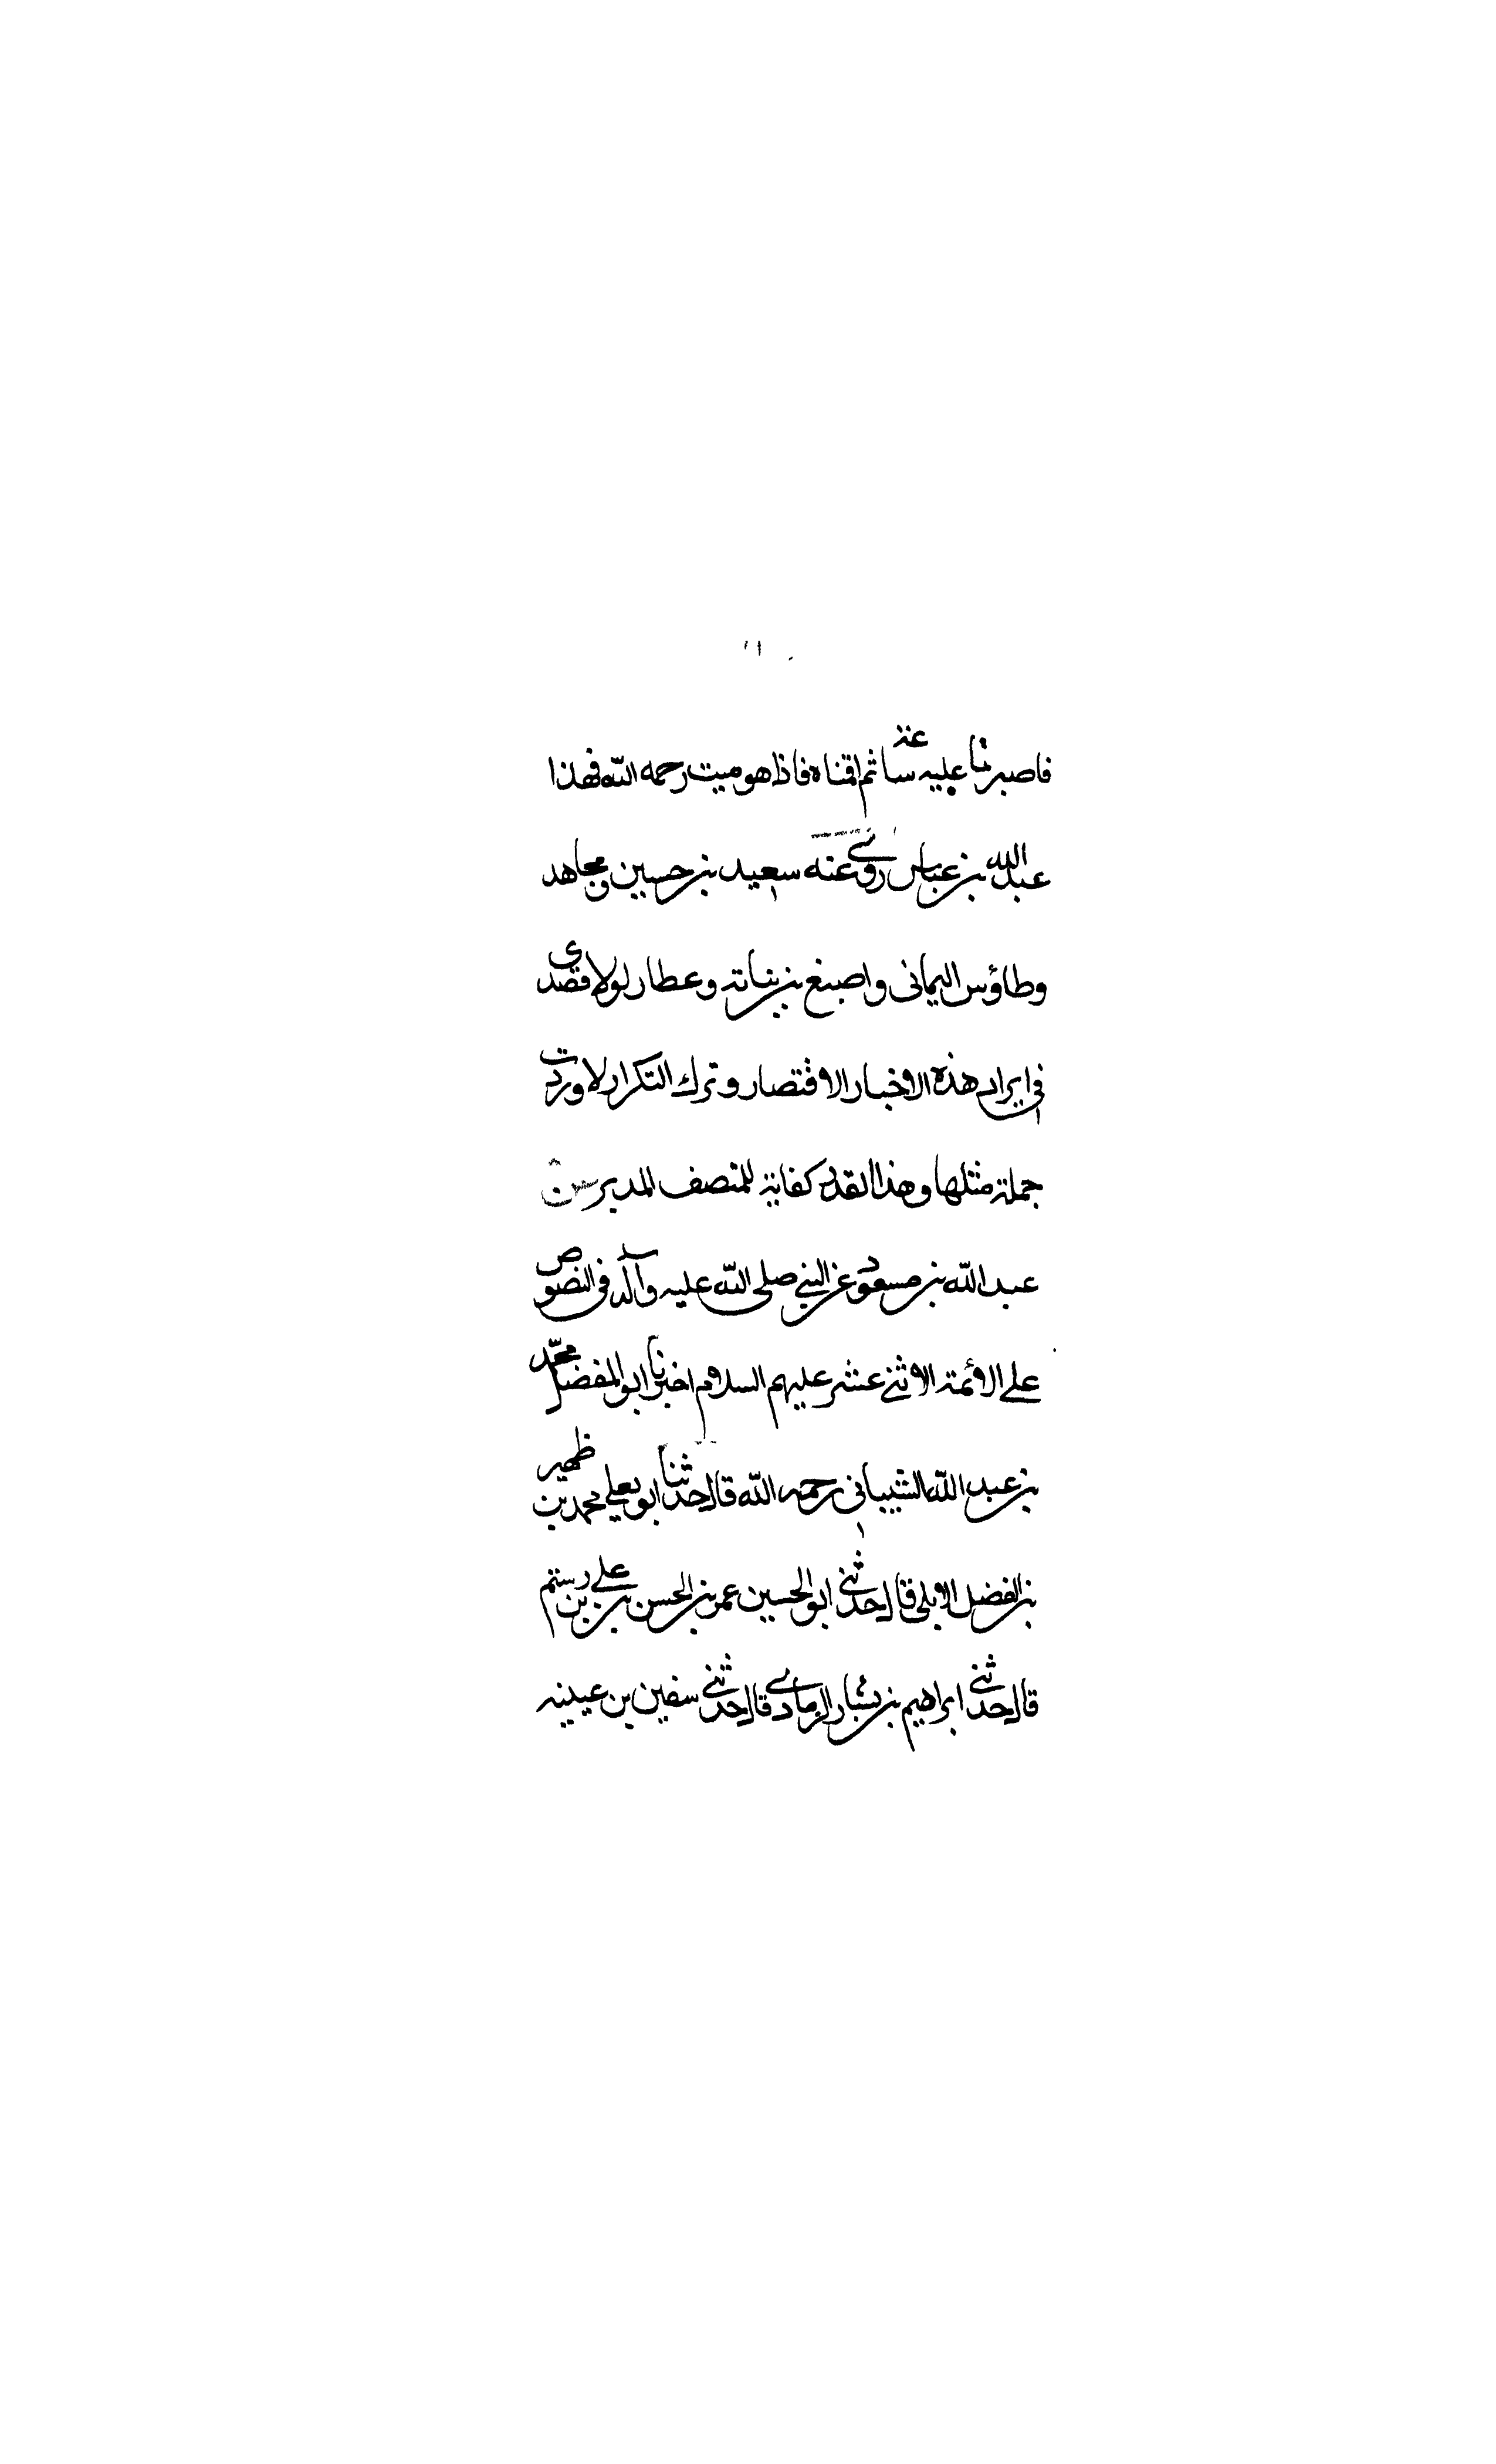 فاصبرنا عليه ساعة ثم اقمناه فاذا هو ميت رحمه الله فهذا
عبدالله بن عباس روى عنه سعيد بن حسين و مجاهد
وطاؤس اليمانى واصبغ بن بناتة وعطار لولا قصدى
فى ايراد هذه الاخبار الاقتصار وترك التكرار لاوردت
جملة مثلها وهذا القدر كفاية للمنصف المدبر
عبد الله بن مسعود عن النبى صلى الله عليه وآله فى النصوص
على الائمة الاثنى عشر عليهم السلام اخبرنا ابو المفضل محمد
بن عبد الله الشيبانى رحمه الله قال حدثنا ابو يعلى محمد بن ظهير
بن الفضل الابلى قال حدثنى ابو الحسين عمر بن الحسن بن على بن رستم
قال حدثنى ابراهيم بن بشار الرمادى قال حدثنى سفين بن عيينه